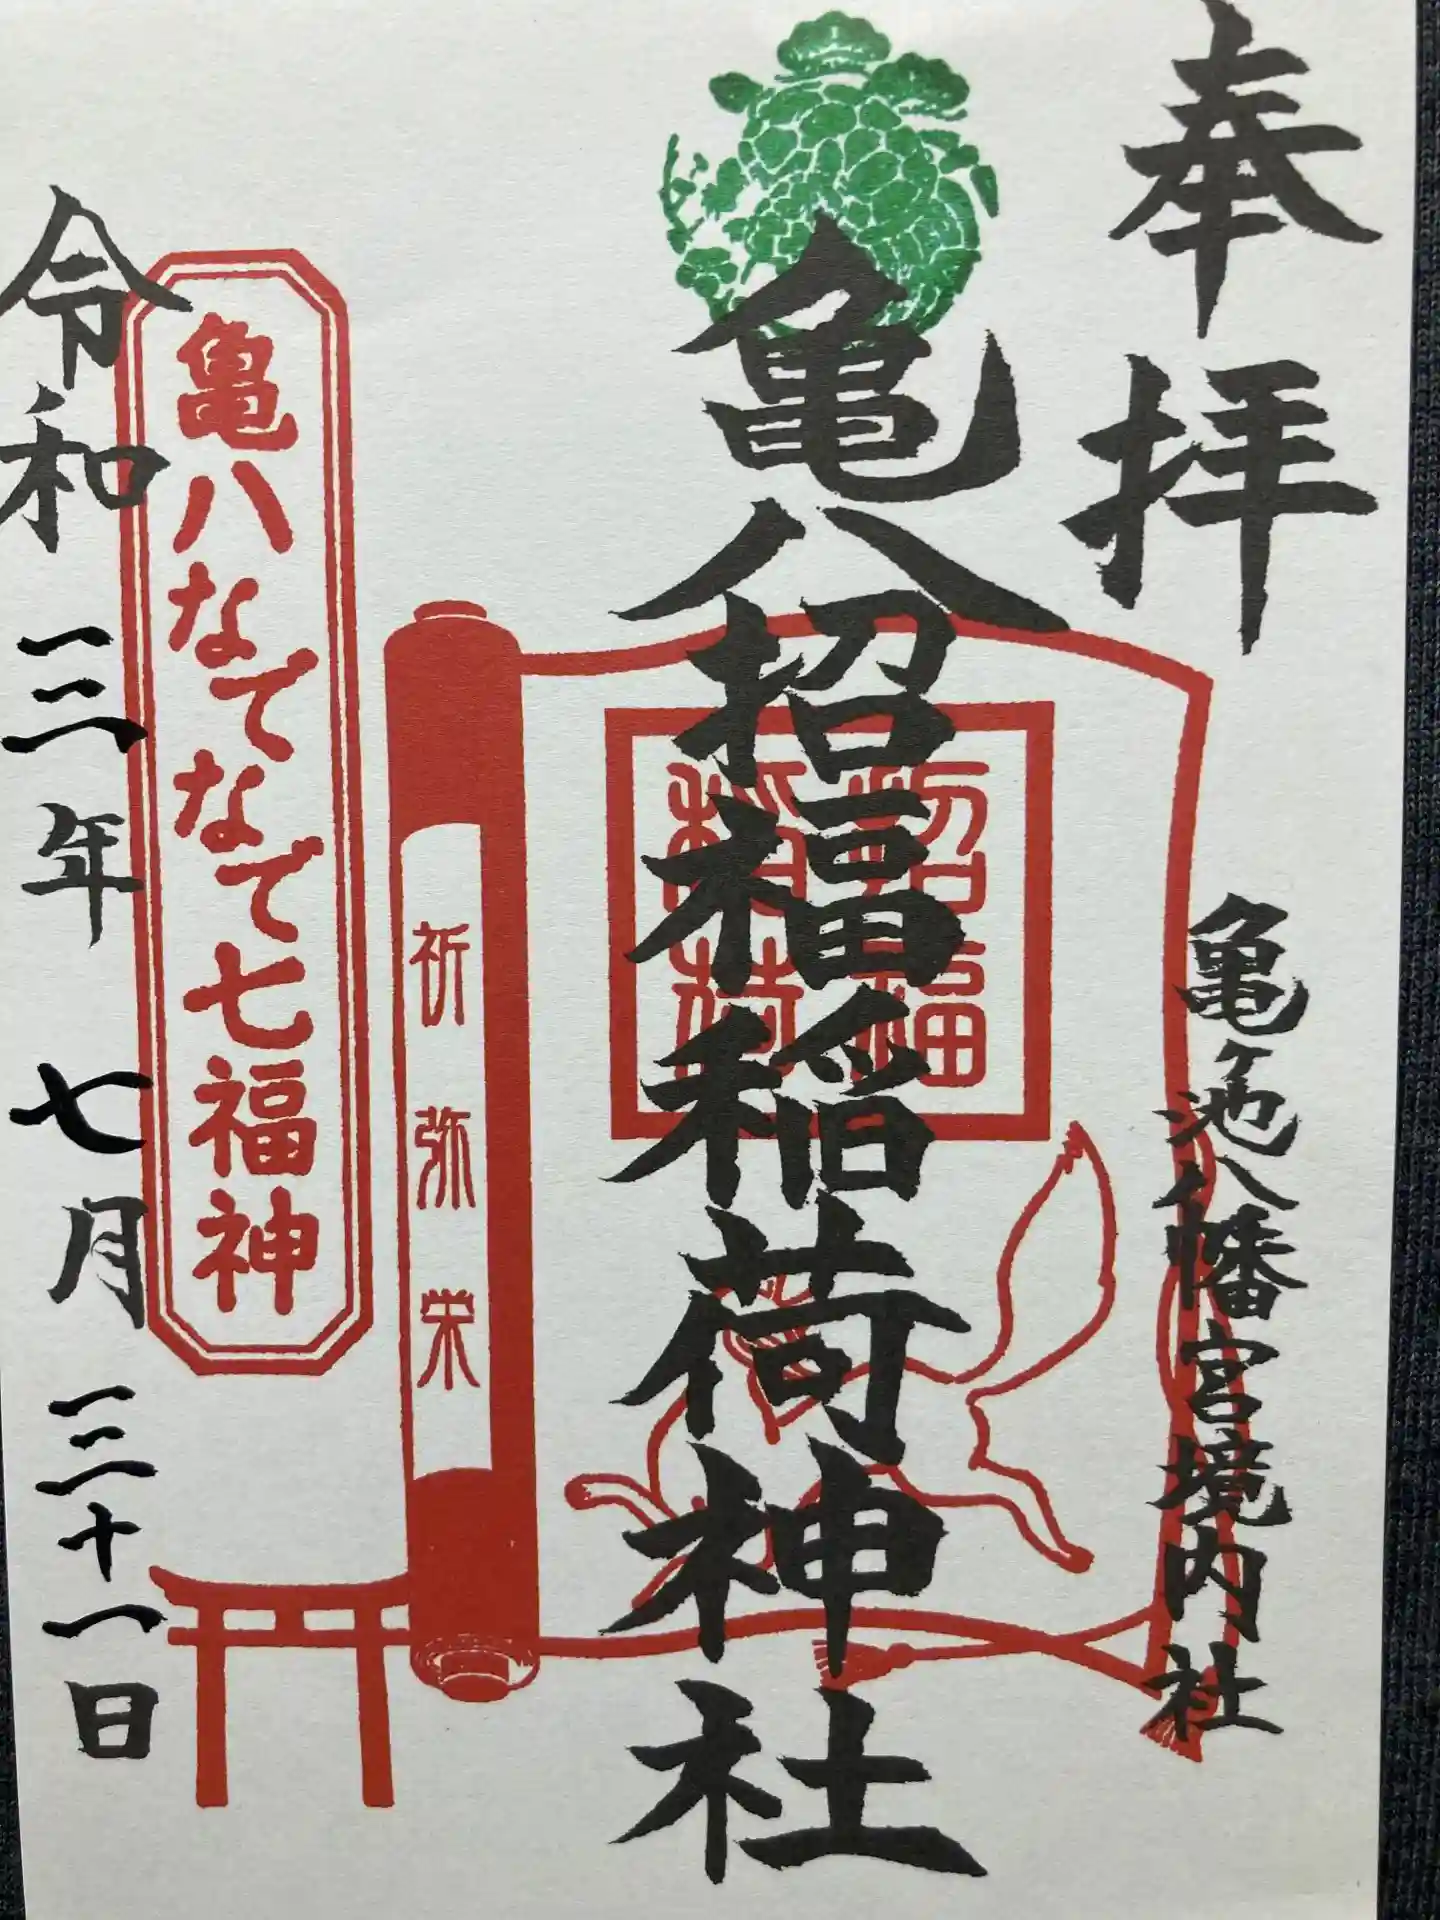 奉拝
亀ヶ池八幡宮境内社
亀八招福稲荷神社
招福
稲荷
祈弥栄
亀八なでなで七福神
令和三年七月三十一日